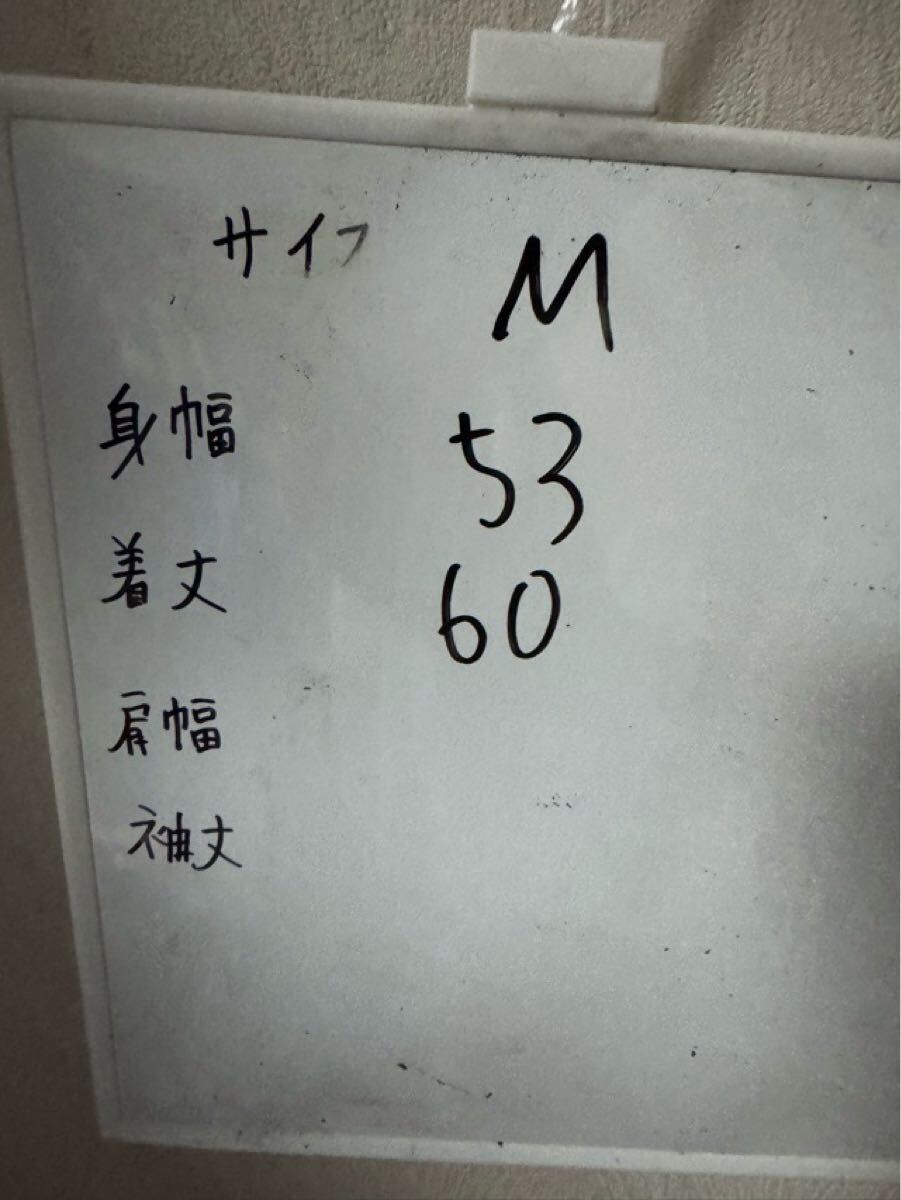 サイフ M
身幅 53
着丈 60
肩幅
袖丈